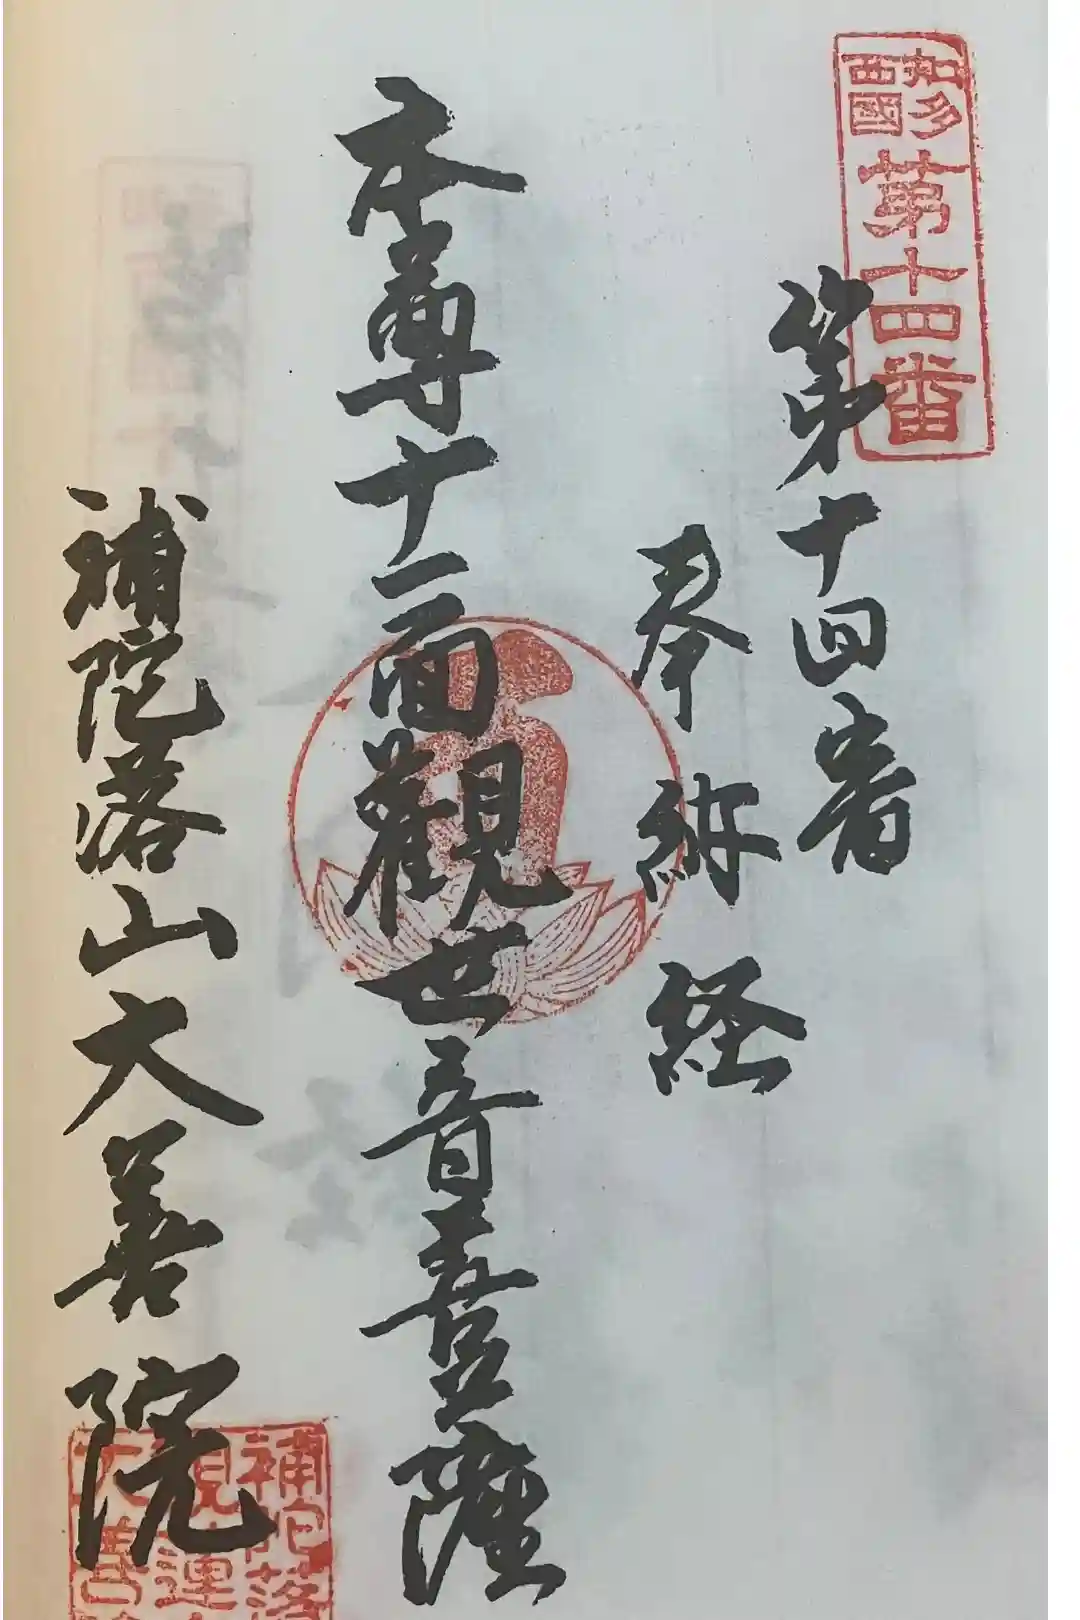 知多
西國
第十四番
第十四番
奉納経
本尊十一面觀世音菩薩
補陀落山大善院
補陀落
大善